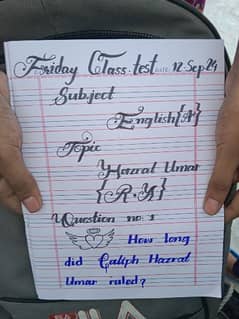 Friday Class test DATE: 12-Sep-24
Subject
English{A}
Topic
Hazrat Umar
{R.A}
Question no 1
How long
did Caliph Hazrat
Umar ruled?